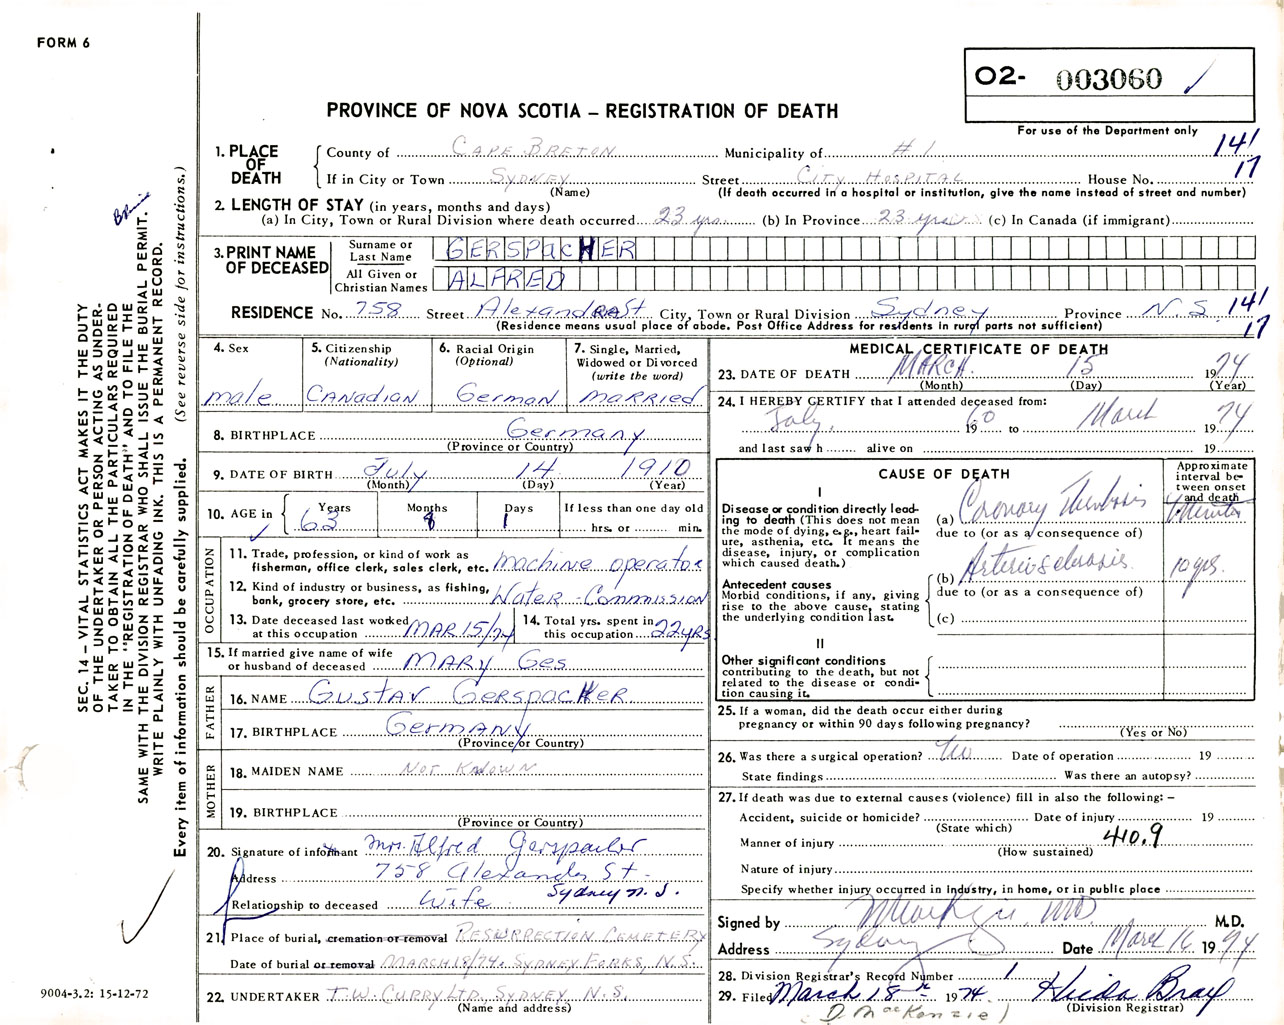 FORM 6
O2- 003060 /
For use of the Department only
PROVINCE OF NOVA SCOTIA – REGISTRATION OF DEATH
SEC. 14 – VITAL STATISTICS ACT MAKES IT THE DUTY
OF THE UNDERTAKER OR PERSON ACTING AS UNDER-
TAKER TO OBTAIN ALL THE PARTICULARS REQUIRED
IN THE "REGISTRATION OF DEATH" AND TO FILE THE
SAME WITH THE DIVISION REGISTRAR WHO SHALL ISSUE THE BURIAL PERMIT.
WRITE PLAINLY WITH UNFADING INK. THIS IS A PERMANENT RECORD.
Every item of information should be carefully supplied. (See reverse side for instructions.)
1. PLACE OF DEATH
County of CAPE BRETON Municipality of #1 141
If in City or Town SYDNEY Street CITY HOSPITAL House No. 17
(Name) (If death occurred in a hospital or institution, give the name instead of street and number)
2. LENGTH OF STAY (in years, months and days)
(a) In City, Town or Rural Division where death occurred 23 yrs (b) In Province 23 years (c) In Canada (if immigrant)
3. PRINT NAME OF DECEASED
Surname or Last Name GERSPACHER
All Given or Christian Names ALFRED
RESIDENCE No. 758 Street Alexandra St City, Town or Rural Division Sydney Province N.S. 141
(Residence means usual place of abode. Post Office Address for residents in rural parts not sufficient) 17
4. Sex
male
5. Citizenship (Nationality)
CANADIAN
6. Racial Origin (Optional)
German
7. Single, Married, Widowed or Divorced (write the word)
MARRIED
8. BIRTHPLACE Germany
(Province or Country)
9. DATE OF BIRTH July 14 1910
(Month) (Day) (Year)
10. AGE in Years Months Days If less than one day old
63 8 1 hrs. or min.
OCCUPATION
11. Trade, profession, or kind of work as
fisherman, office clerk, sales clerk, etc. machine operator
12. Kind of industry or business, as fishing,
bank, grocery store, etc. Water - Commission
13. Date deceased last worked
at this occupation MAR 15/74
14. Total yrs. spent in
this occupation 22 YRS
15. If married give name of wife
or husband of deceased MARY Ges
FATHER
16. NAME GUSTAV GERSPACHER
17. BIRTHPLACE GERMANY
(Province or Country)
MOTHER
18. MAIDEN NAME NOT KNOWN
19. BIRTHPLACE
(Province or Country)
20. Signature of informant Mrs. Alfred Gerspacher
Address 758 Alexandra St.
Sydney N.S.
Relationship to deceased Wife
21. Place of burial, cremation or removal RESURRECTION CEMETERY
Date of burial or removal MARCH 18/74. SYDNEY FORKS, N.S.
22. UNDERTAKER T.W. CURRY LTD. SYDNEY N.S.
(Name and address)
MEDICAL CERTIFICATE OF DEATH
23. DATE OF DEATH MARCH 15 1974
(Month) (Day) (Year)
24. I HEREBY CERTIFY that I attended deceased from:
July, 1960 to March 1974
and last saw h alive on 19
CAUSE OF DEATH
Approximate interval between onset and death
I
Disease or condition directly lead-
ing to death (This does not mean
the mode of dying, e.g., heart fail-
ure, asthenia, etc. It means the
disease, injury, or complication
which caused death.)
(a) Coronary Thrombosis
due to (or as a consequence of)
Antecedent causes
Morbid conditions, if any, giving
rise to the above cause, stating
the underlying condition last.
(b) Arteriosclerosis. 10 yrs.
due to (or as a consequence of)
(c)
II
Other significant conditions
contributing to the death, but not
related to the disease or condi-
tion causing it.
25. If a woman, did the death occur either during
pregnancy or within 90 days following pregnancy?
(Yes or No)
26. Was there a surgical operation? no Date of operation 19
State findings Was there an autopsy?
27. If death was due to external causes (violence) fill in also the following: –
Accident, suicide or homicide? Date of injury 19
(State which)
Manner of injury 410.9
(How sustained)
Nature of injury
Specify whether injury occurred in industry, in home, or in public place
Signed by MD M.D.
Address Sydney Date March 16 1974
28. Division Registrar's Record Number 1
29. Filed March 18th 1974 Hilda Bray
(Division Registrar)
(D. MacKenzie)
9004-3.2: 15-12-72